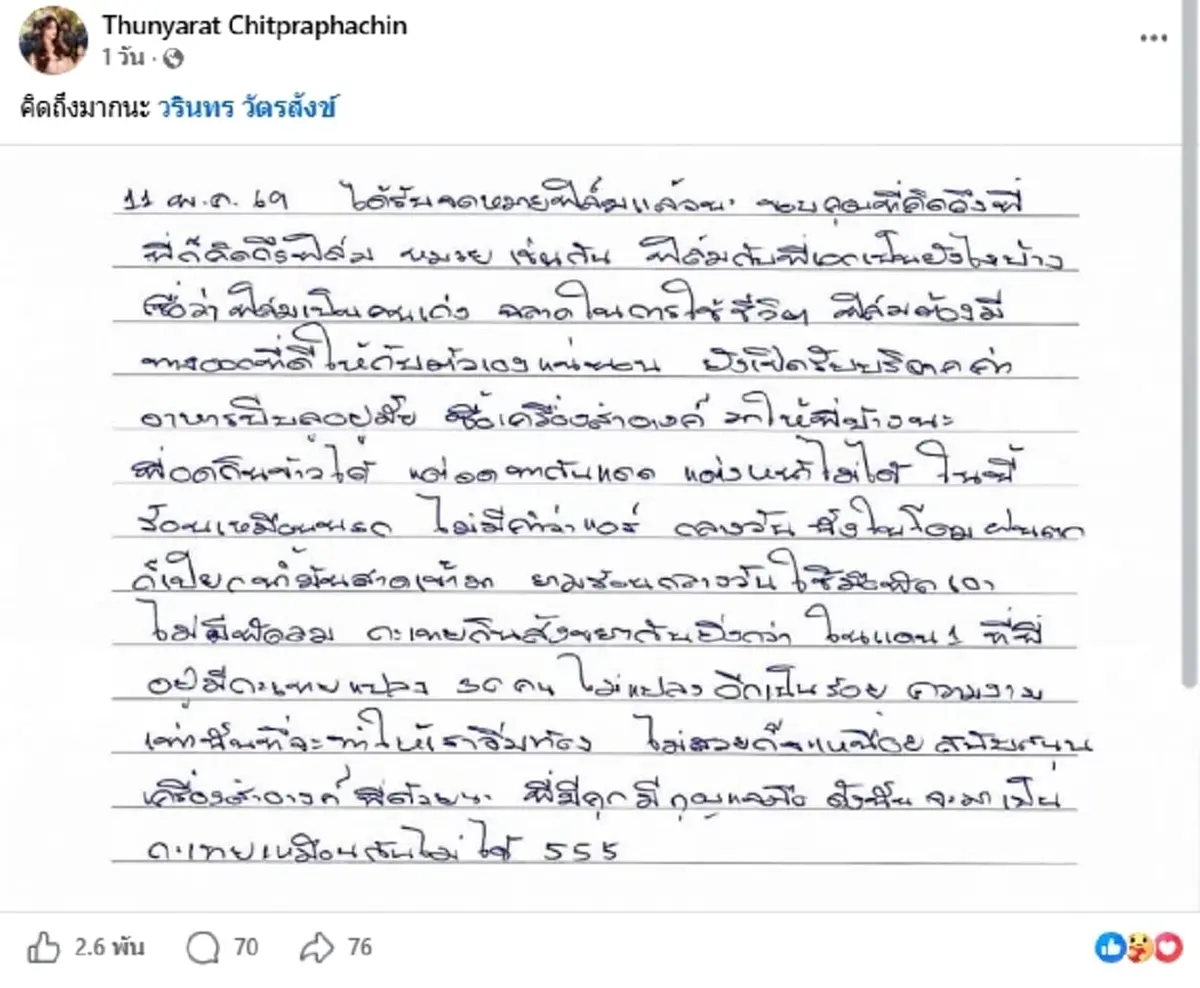 Thunyarat Chitpraphachin
1 วัน ·
คิดถึงมากนะ วรินทร วัตรสังข์
11 พ.ค. 69 ได้รับจดหมายฟิล์มแล้วนะ ขอบคุณที่คิดถึงพี่
พี่ก็คิดถึงฟิล์ม หมวย เช่นกัน ฟิล์มกับพี่เอเป็นยังไงบ้าง
เชื่อว่าฟิล์มเป็นคนเก่ง ฉลาดในการใช้ชีวิต ฟิล์มต้องมี
ทางออกที่ดีให้กับตัวเองแน่นอน ยังเปิดรับบริจาคค่า
อาหารปีบคออยู่มั้ย ซื้อเครื่องสำอางค์ มาให้พี่บ้างนะ
พี่อดกินข้าวได้ แต่อดทากันแดด แต่งหน้าไม่ได้ ในนี้
ร้อนเหมือนนรก ไม่มีคำว่าแอร์ กลางวัน นั่งในโดม ฝนตก
ก็เปียกน้ำมันสาดเข้ามา ยามร้อนกลางวันใช้มือพัดเอา
ไม่มีพัดลม กะเทยกินสังขยากันยิ่งกว่า ในแดน 1 ที่พี่
อยู่มีกะเทยแปลง 30 คน ไม่แปลงอีกเป็นร้อย ความงาม
เท่านั้นที่จะทำให้เราอิ่มท้อง ไม่สวยก็เหนื่อย สนับสนุน
เครื่องสำอางค์ พี่ด้วยนะ พี่มีคุก มี กุญแจมือ ดังนั้น จะมาเป็น
กะเทยเหมือนกันไม่ได้ 555
2.6 พัน 70 76